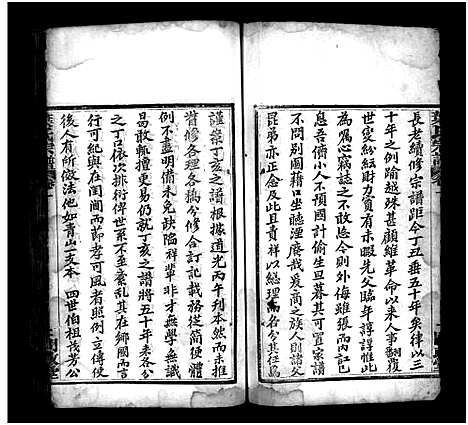 長老續修宗譜距今丁丑垂五十年矣律以三
十年之例踰越殊甚顧維革命以來人事翻覆
世變紛紜財力莫有未暇先父臨年諄諄惟此
為囑心竊誌之不敢忽今則外侮雖張而內訌已
息吾儕小人不預國計偷生旦暮其可置家譜
不問別圖國石計湮庵哉爰商之族人則諸父
昆弟亦正念及此貴祥以總理為各分其任焉
謹案丁亥之譜根據道光丙午刊本然而未推
首修各理各稿今修合訂記載務從簡便體
例不盡明備未免缺陷祥輩非才無學無誠
曷敢輒擅更易仍就丁亥之譜將五十年來各分
之丁口依次排衍俾世系不至紊亂其在鄉國而言
行可紀與在閨閫而節孝可風者照例立傳使
後人有所倣法他如青山一支本四世伯祖茂芳公